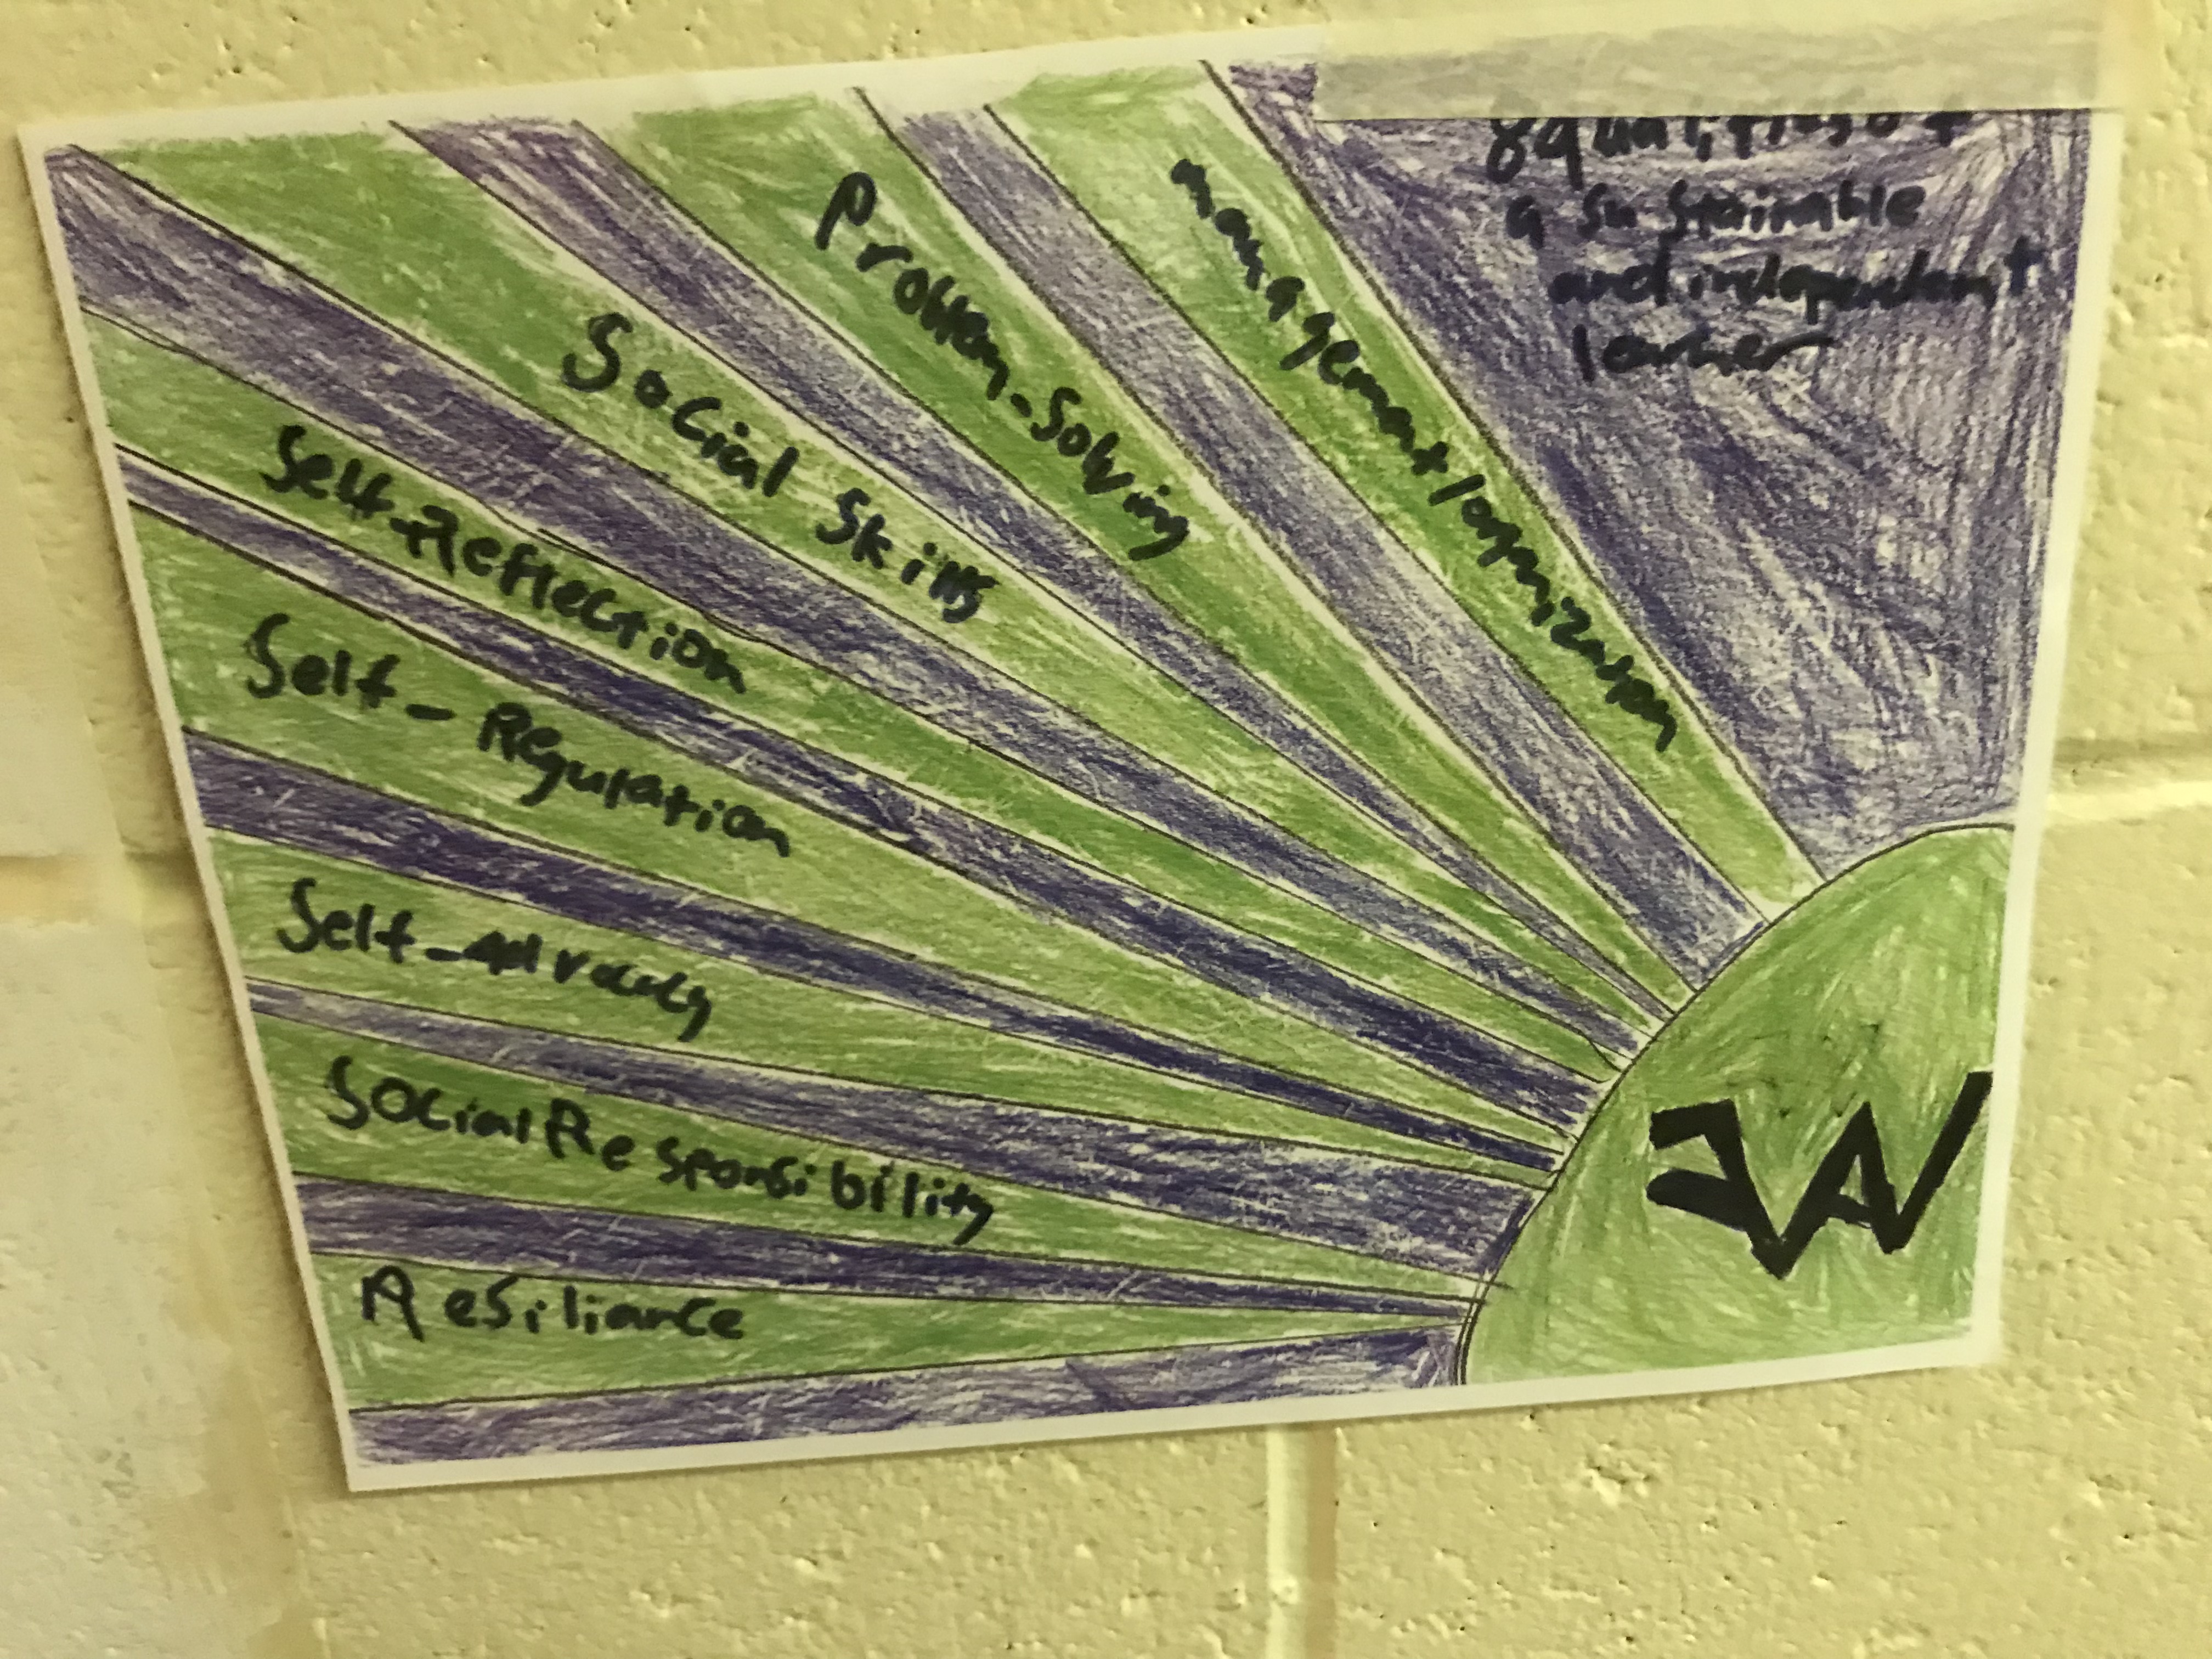 8 qualities of
a sustainable
and independent
learner
management/organization
Problem-Solving
Social Skills
Self-Reflection
Self-Regulation
Self-Advocacy
Social Responsibility
Resiliance